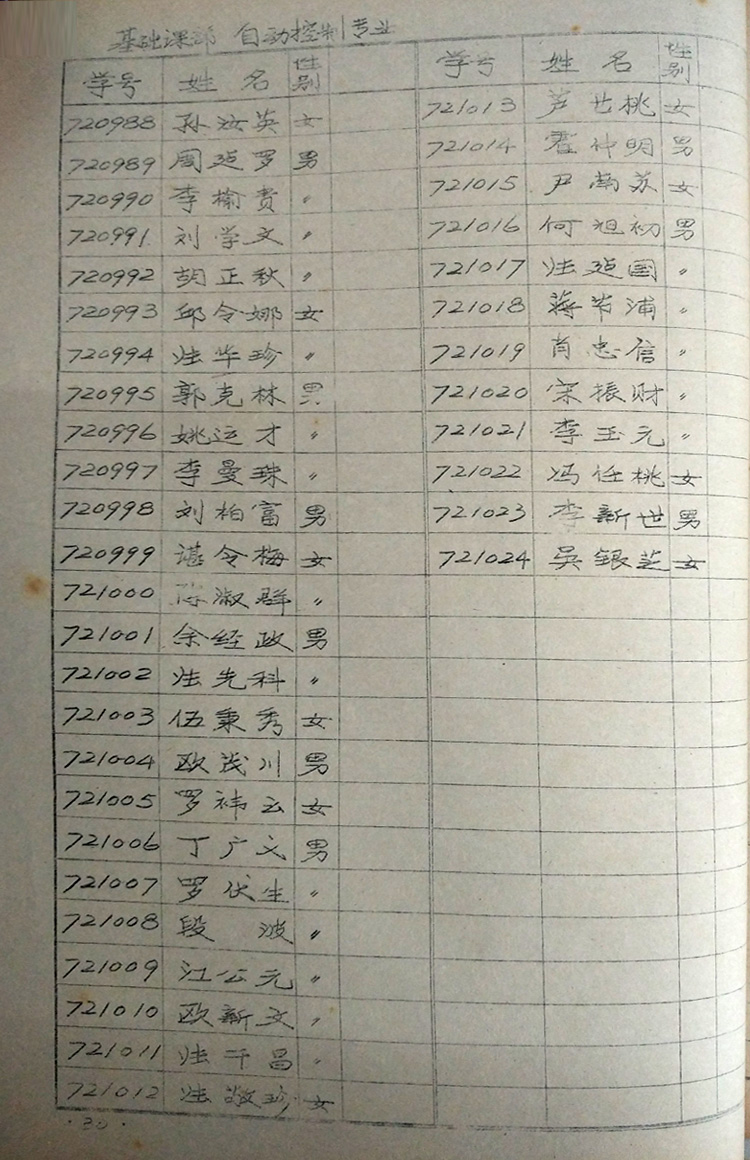 基础课部 自动控制专业
学号 姓名 性别
720988 孙汝英 女
720989 周廷罗 男
720990 李榆贵 〃
720991 刘学文 〃
720992 胡正秋 〃
720993 邱令娜 女
720994 华珍 〃
720995 郭克林 男
720996 姚运才 〃
720997 李曼珠 〃
720998 刘柏富 男
720999 谌令梅 女
721000 陈淑群 〃
721001 余经政 男
721002 先科 〃
721003 伍秉秀 女
721004 欧茂川 男
721005 罗祎云 女
721006 丁广文 男
721007 罗伏生 〃
721008 段波 〃
721009 江公元 〃
721010 欧新文 〃
721011 千昌 〃
721012 敬珍 女
学号 姓名 性别
721013 芦世桃 女
721014 霍仲明 男
721015 尹南苏 女
721016 何旭初 男
721017 国 〃
721018 蒋节浦 〃
721019 肖忠信 〃
721020 宋振财 〃
721021 李玉元 〃
721022 冯任桃 女
721023 李新世 男
721024 吴银芝 女
·30·